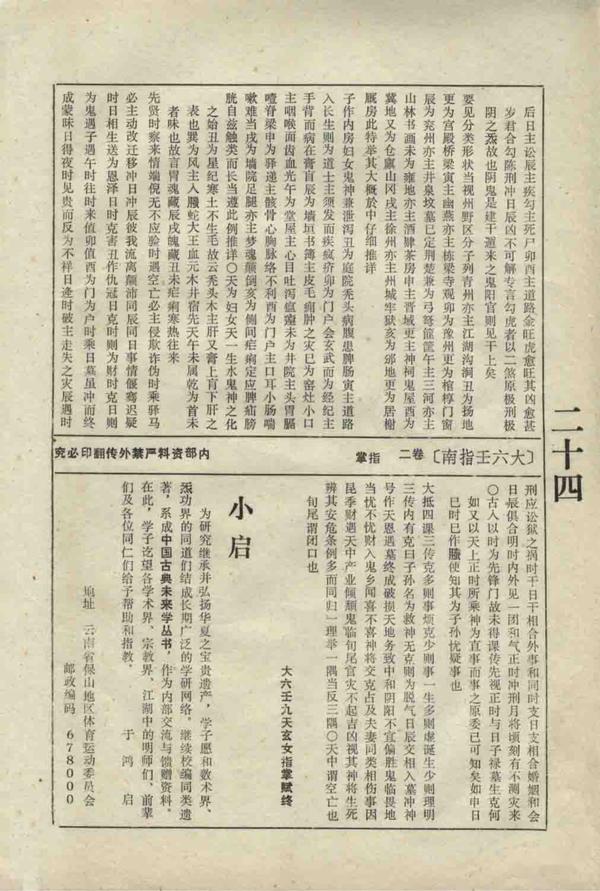 后日主讼辰主疾勾主死尸卯酉主道路金旺虎愈旺其凶愈甚
岁君含勾陈刑冲日辰凶不可解专言勾虎者以二煞原极刑极
阴之炁故也阴鬼是建干遁来之鬼阳官则见干上矣
要见分类形状当视州野区分子列青州亦主江湖沟涧丑为扬地
更为宫殿桥梁寅主幽燕亦主栋梁寺观卯为豫州更为棺椁门窗
辰为兖州亦主井泉坟墓巳定荆楚兼为弓弩筐篚午主三河亦主
山林书画未为雍地亦主酒肆茶房申主晋域更主神柯鬼屋酉为
冀地又为仓廪山冈戌主徐州亦主州城牢狱亥为邠地更为居榭
厩房此特举其大概於中仔细推详
子作内房妇女鬼神兼泄泻丑为庭院秃头病腹患脾肠寅主道路
入长生则为道士主须发而疾疯疥卯为门户会玄武而为经纪主
手背而病在膏肓辰为墙垣书簿主皮毛痈肿之灾巳为窑灶小口
主咽喉面齿血光午为堂屋主心目吐泻瘟瘴未为井院主头胃膈
噎脊梁申为驿递主骸骨心胸脉络不利酉为门户主口耳小肠喘
嗽难当戌为墙院足腿亦主梦魂颠倒亥为侧同疟痢定应脾疝膀
胱自兹触类而长当遵此例推详〇天为妇女天一生水鬼神之化
之始丑为星纪寒土不生毛故云秃头木主肝又膏上肓下肝之
表也巽为风主入腠蛇大王血元木井宿先天午未属乾为首未
者味也故言胃魂藏辰戌魄藏丑未疟痢寒热往来
先贤时察来情端倪无不应验时遇空亡必主侵欺诈伪时乘驿马
必主动改迁移冲日冲辰彼我流离颠沛同辰同日事情偃蹇迟疑
时日相生送为恩泽日时克害丑作仇冠日克时则为财时克日则
为鬼遇子遇午时往时来值卯值酉为门为户时乘日墓虽冲而终
成蒙昧日得夜时见贵而反为不祥日逢时破主走失之灾辰遇时
二十四
〔大六壬指南〕卷二 指掌
内部资料严禁外传翻印必究
刑应讼狱之祸时干日干相合外事和同时支日支相合婚姻和会
日辰俱合明时内外见一团和气正时冲刑月将顷刻有不测灾来
〇古人以时为先锋门故未得课传先视正时与日子禄墓生克何
如又以天上正时所乘神为直事而事之原委已可知矣如申日
巳时巳作腾使知其为子孙忧疑事也
大抵四课三传克多则事烦克少则事一生多则虚诞生少则理明
三传内有克日子孙名为救神无克则为脱气日辰交相入墓冲神
号作天恩遇墓终成破损天地务致中和阴阳不宜偏胜鬼临畏地
当忧不忧财入鬼乡闻喜不喜神将交克占及夫妻同类相伤事因
昆季财遇天中产业倾颓鬼临旬尾官灾不起吉凶视其神将生死
辨其安危条例多而同归一理举一隅当反三隅〇天中谓空亡也
旬尾谓闭口也
大六壬九天玄女指掌赋终
小启
为研究继承并弘扬华夏之宝贵遗产，学子愿和数术界、
炁功界的同道们结成长期广泛的学研网络。继续校编同类遗
著，系成中国古典未来学丛书，作为内部交流与馈赠资料。
在此，学子讫望各学术界、宗教界、江湖中的明师们、前辈
们及各位同仁们给予帮助和指教。
于鸿启
地址 云南省保山地区体育运动委员会
邮政编码 678000